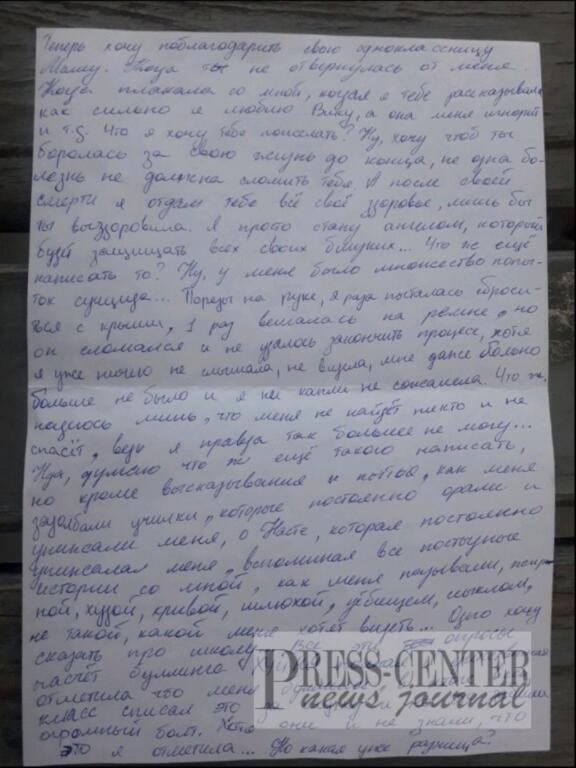 Теперь хочу поблагодарить свою одноклассницу
Машу. Тогда ты не отвернулась от меня.
Когда плакала со мной, когда я тебе рассказывала
как сильно я люблю Вику, а она меня игнорит
и т.д. Что я хочу тебе пожелать? Ну, хочу чтоб ты
боролась за свою жизнь до конца, не одна бо-
лезнь не должна сломить тебя. А после своей
смерти я отдам тебе всё своё здоровье, лишь бы
ты выздоровила. Я просто стану ангелом, который
будет защищать всех своих близких... Что же ещё
написать то? Ну, у меня было множество попы-
ток суицида... Порезы на руке, я раза пыталась сброси-
ться с крыши, 1 раз вешалась на ремне, но
он сломался и не удалось закончить процесс, хотя
я уже ничего не слышала, не видела, мне даже больно
больше не было и я ни капли не сожалела. Что ж,
надеюсь лишь, что меня не найдёт никто и не
спасёт, ведь я правда так больше не могу...
Нда, думаю что ж ещё такого написать,
но кроме высказывания и о том, как меня
задолбали училки, которые постоянно орали и
унижали меня, о Насте, которая постоянно
унижала меня, вспоминая все постыдные
истории со мной, как меня называли,
ной, худой, кривой, шлюхой, убищем,
не такой, какой меня хотят видеть... Одно хочу
сказать про школу. Все эти опросы
насчёт буллинга
отметила что меня
класс списал это
огромный болт. Хотя они и не знали, что
это я отметила... Но какая уже разница?
PRESS-CENTER
news journal